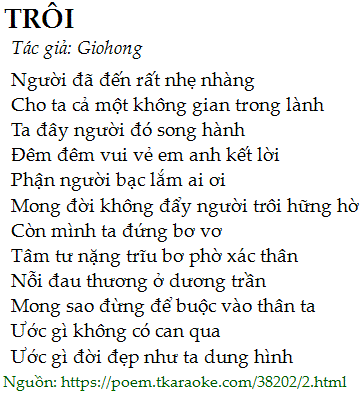 TRÔI
Tác giả: Giohong
Người đã đến rất nhẹ nhàng
Cho ta cả một không gian trong lành
Ta đây người đó song hành
Đêm đêm vui vẻ em anh kết lời
Phận người bạc lắm ai ơi
Mong đời không đẩy người trôi hững hờ
Còn mình ta đứng bơ vơ
Tâm tư nặng trĩu bơ phờ xác thân
Nỗi đau thương ở dương trần
Mong sao đừng để buộc vào thân ta
Ước gì không có can qua
Ước gì đời đẹp như ta dung hình
Nguồn: https://poem.tkaraoke.com/38202/2.html